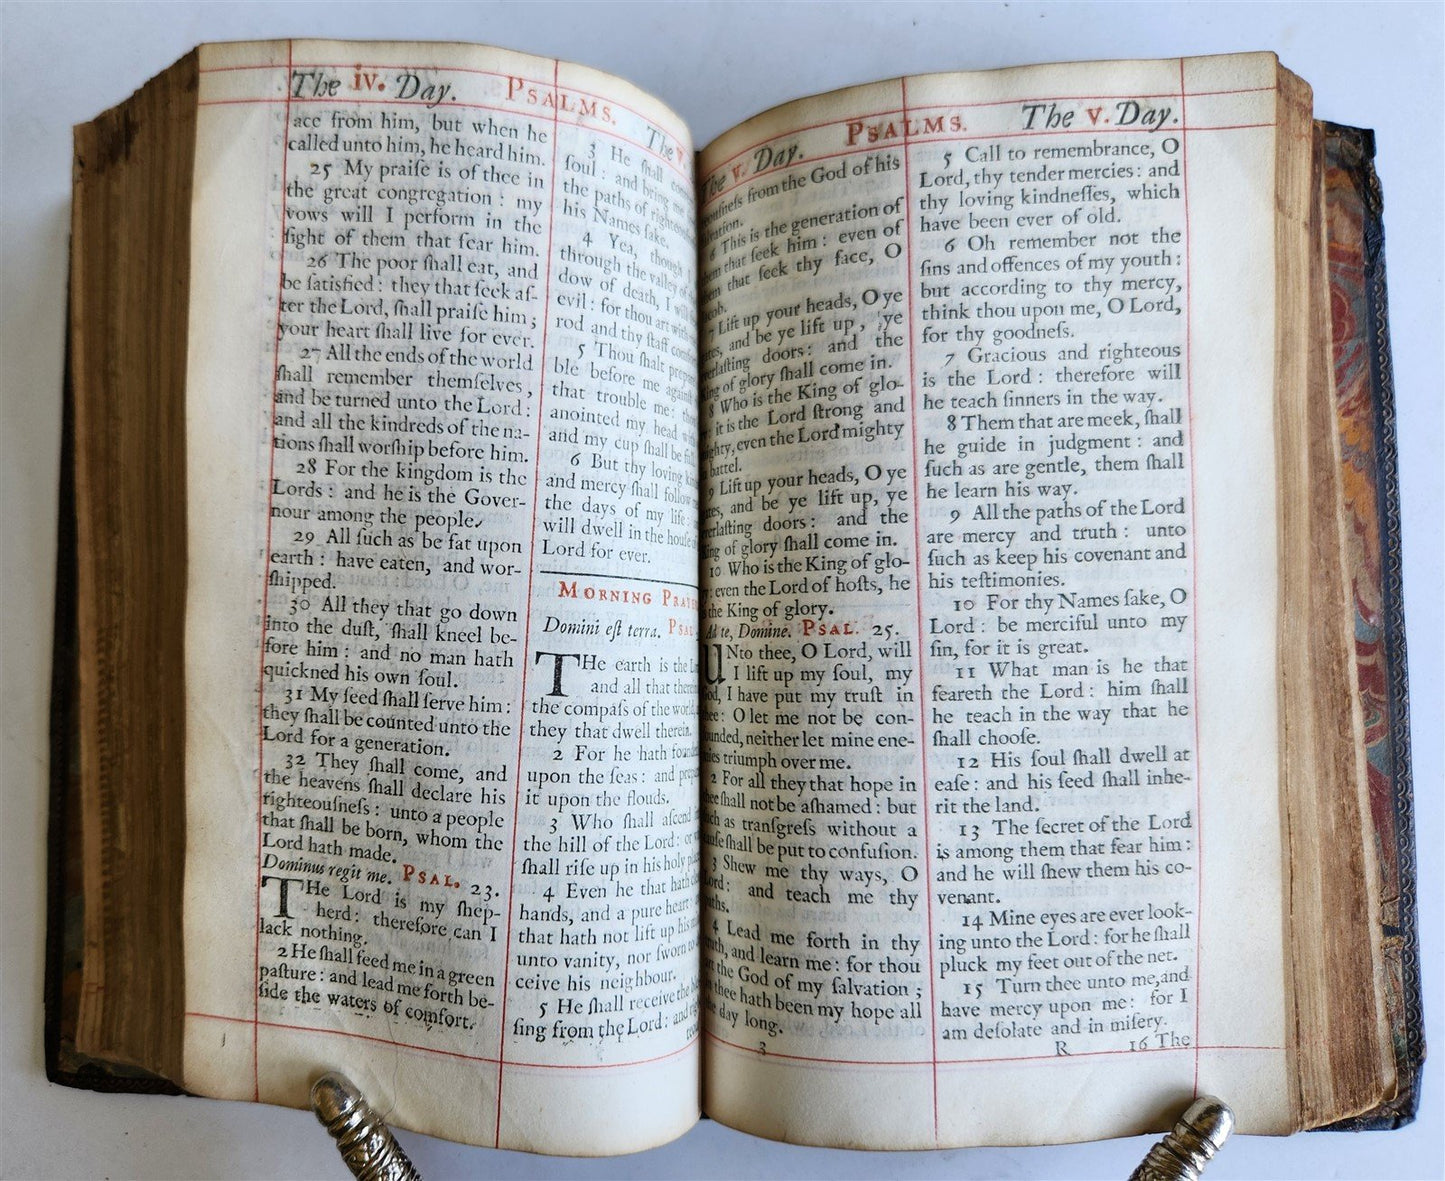 The iv. Day. PSALMS. The v.
ace from him, but when he
called unto him, he heard him.
25 My praiſe is of thee in
the great congregation : my
vows will I perform in the
ſight of them that fear him.
26 The poor ſhall eat, and
be ſatisfied : they that ſeek af-
ter the Lord, ſhall praiſe him ;
your heart ſhall live for ever.
27 All the ends of the world
ſhall remember themſelves,
and be turned unto the Lord :
and all the kindreds of the na-
tions ſhall worſhip before him.
28 For the kingdom is the
Lords : and he is the Gover-
nour among the people.
29 All ſuch as be fat upon
earth : have eaten, and wor-
ſhipped.
30 All they that go down
into the duſt, ſhall kneel be-
fore him : and no man hath
quickned his own ſoul.
31 My ſeed ſhall ſerve him :
they ſhall be counted unto the
Lord for a generation.
32 They ſhall come, and
the heavens ſhall declare his
righteouſneſs : unto a people
that ſhall be born, whom the
Lord hath made.
Dominus regit me. PSAL. 23.
THe Lord is my ſhep-
herd : therefore can I
lack nothing.
2 He ſhall feed me in a green
paſture : and lead me forth be-
ſide the waters of comfort.
3 He ſhall
ſoul : and bring me
the paths of
his Names ſake.
4 Yea, though I
through the valley of
dow of death, I will
evil : for thou art with
rod and thy ſtaff
5 Thou ſhalt
ble before me
that trouble me :
anointed my head
and my cup ſhall be
6 But thy loving
and mercy ſhall follow
the days of my life :
will dwell in the houſe of
Lord for ever.
MORNING
Domini eſt terra. PSAL
THe earth is the
and all that
the compaſs of the world,
they that dwell therein.
2 For he hath
upon the ſeas : and
it upon the flouds.
3 Who ſhall aſcend
the hill of the Lord : or
ſhall riſe up in his holy
4 Even he that hath
hands, and a pure heart
that hath not lift up his
unto vanity, nor ſworn to
ceive his neighbour.
5 He ſhall receive the
ſing from the Lord : and
The v. Day. PSALMS. The v. Day.
from the God of his
6 This is the generation of
them that ſeek him : even of
them that ſeek thy face, O
7 Lift up your heads, O ye
and be ye lift up, ye
everlaſting doors : and the
King of glory ſhall come in.
8 Who is the King of glo-
it is the Lord ſtrong and
mighty, even the Lord mighty
battel.
9 Lift up your heads, O ye
and be ye lift up, ye
everlaſting doors : and the
King of glory ſhall come in.
10 Who is the King of glo-
even the Lord of hoſts, he
is the King of glory.
Ad te, Domine. PSAL. 25.
UNto thee, O Lord, will
I lift up my ſoul, my
God, I have put my truſt in
thee : O let me not be con-
founded, neither let mine ene-
mies triumph over me.
2 For all they that hope in
thee ſhall not be aſhamed : but
ſuch as tranſgreſs without a
cauſe ſhall be put to confuſion.
3 Shew me thy ways, O
Lord : and teach me thy
paths.
4 Lead me forth in thy
truth, and learn me : for thou
art the God of my ſalvation ;
in thee hath been my hope all
the day long.
3
5 Call to remembrance, O
Lord, thy tender mercies : and
thy loving kindneſſes, which
have been ever of old.
6 Oh remember not the
ſins and offences of my youth :
but according to thy mercy,
think thou upon me, O Lord,
for thy goodneſs.
7 Gracious and righteous
is the Lord : therefore will
he teach ſinners in the way.
8 Them that are meek, ſhall
he guide in judgment : and
ſuch as are gentle, them ſhall
he learn his way.
9 All the paths of the Lord
are mercy and truth : unto
ſuch as keep his covenant and
his teſtimonies.
10 For thy Names ſake, O
Lord : be merciful unto my
ſin, for it is great.
11 What man is he that
feareth the Lord : him ſhall
he teach in the way that he
ſhall chooſe.
12 His ſoul ſhall dwell at
eaſe : and his ſeed ſhall inhe-
rit the land.
13 The ſecret of the Lord
is among them that fear him :
and he will ſhew them his co-
venant.
14 Mine eyes are ever look-
ing unto the Lord : for he ſhall
pluck my feet out of the net.
15 Turn thee unto me, and
have mercy upon me : for I
am deſolate and in miſery.
R 16 The